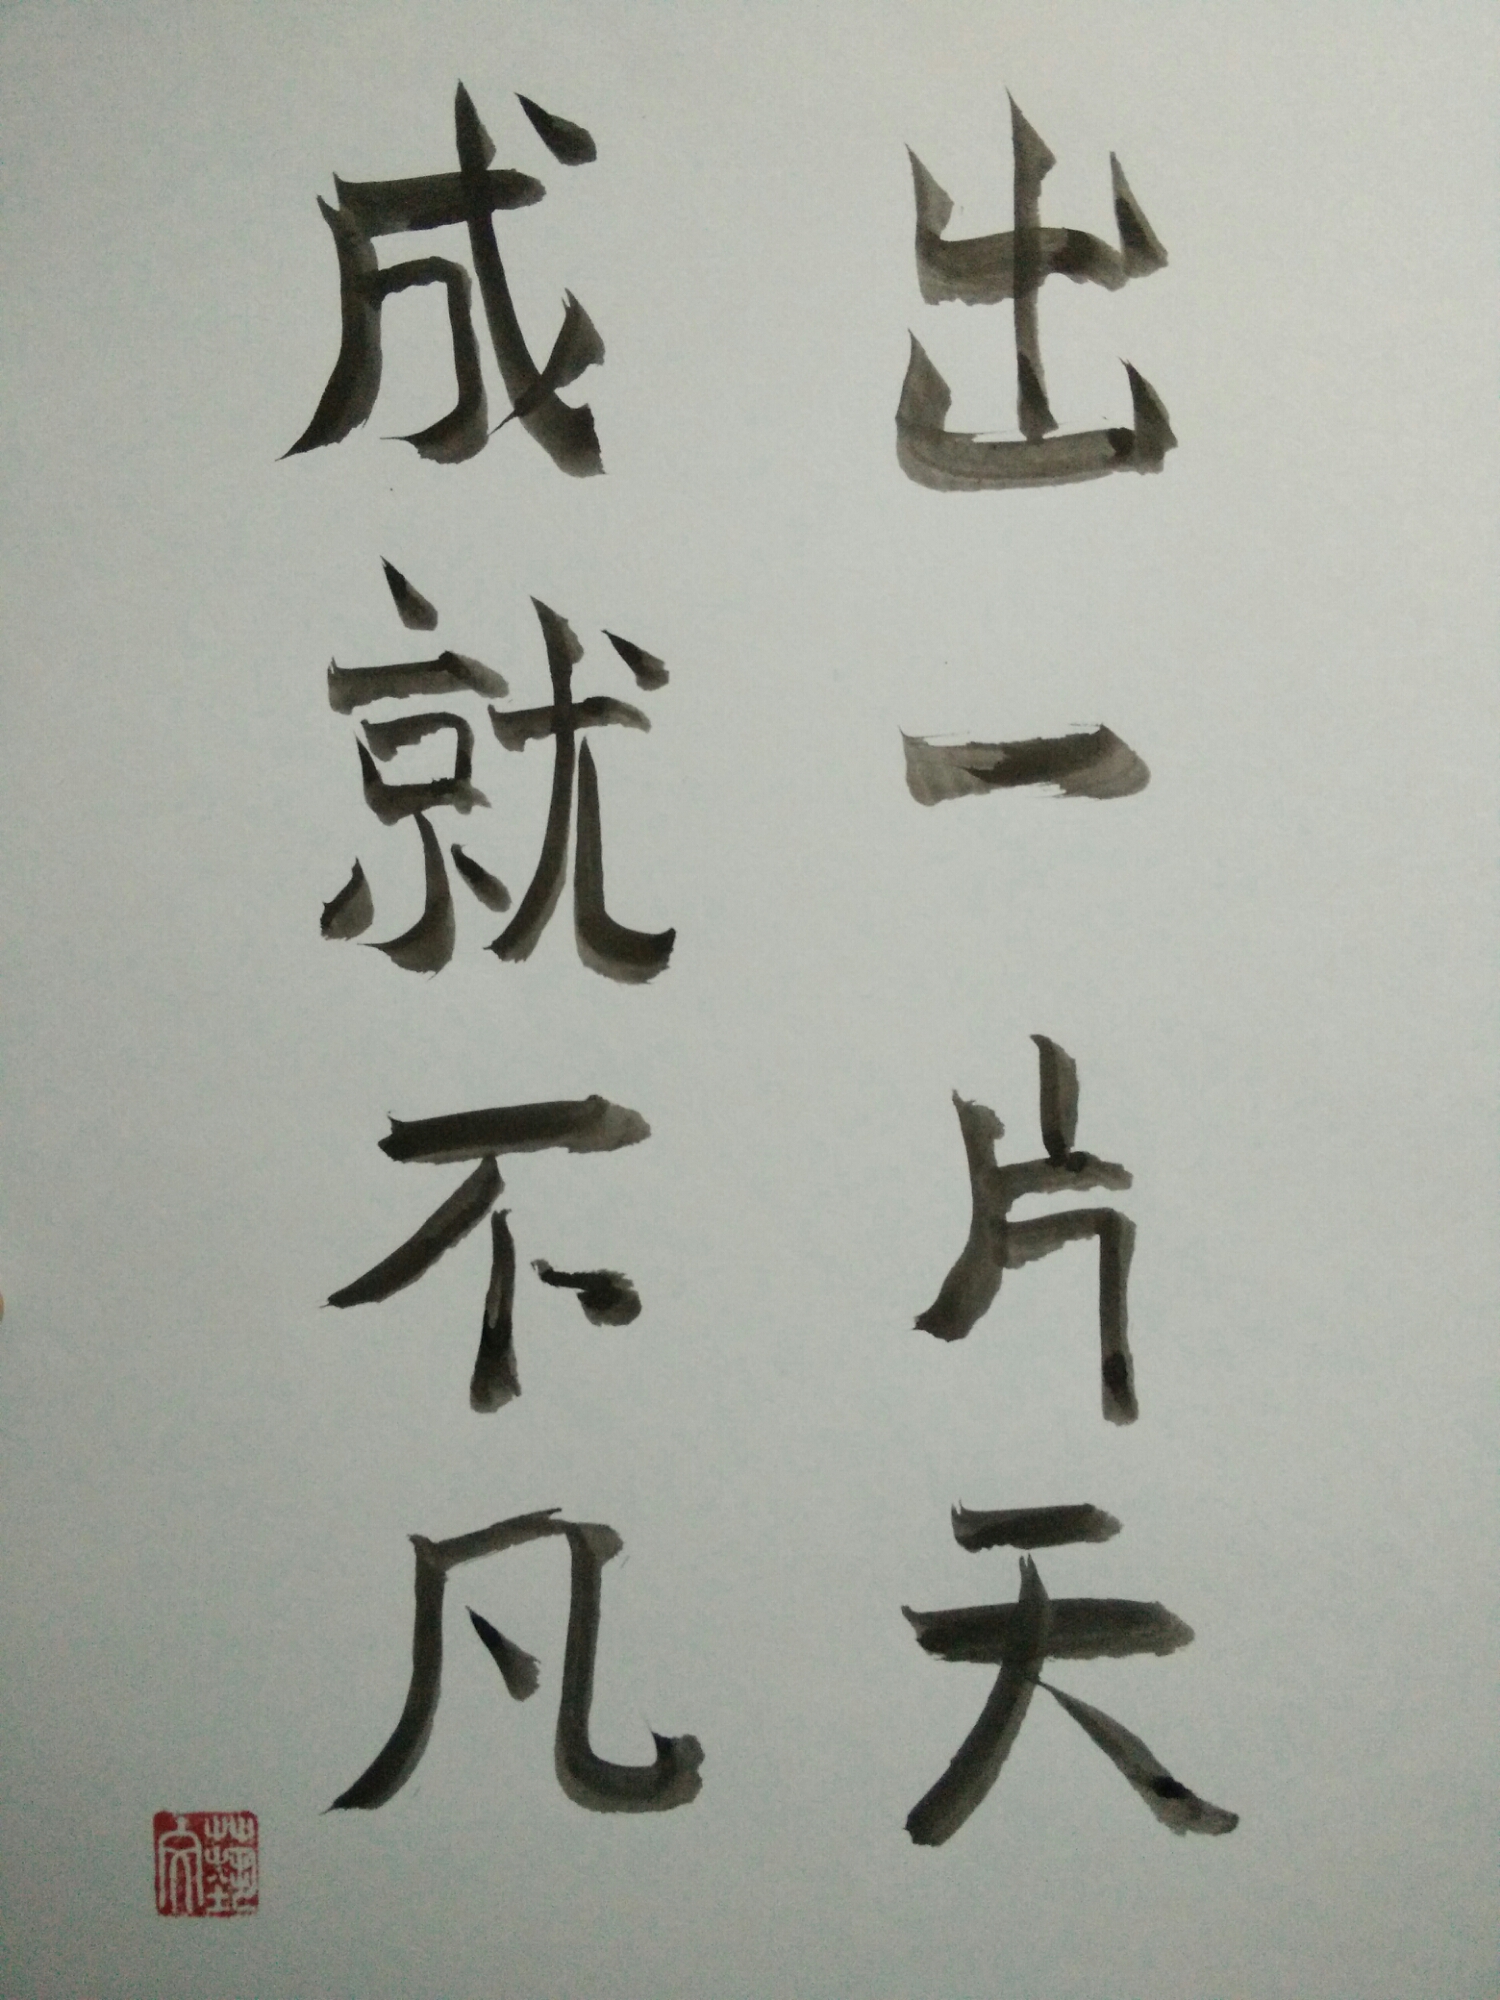 出一片天
成就不凡